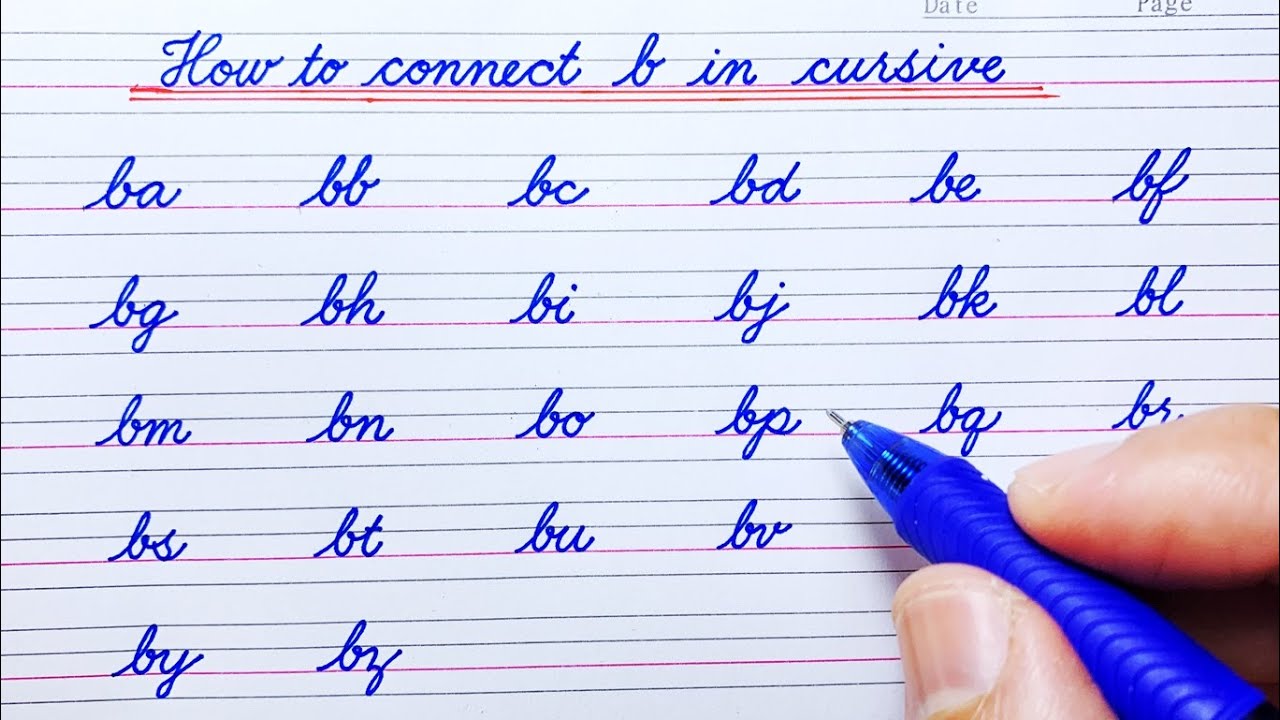 Date Page
How to connect b in cursive
ba bb bc bd be bf
bg bh bi bj bk bl
bm bn bo bp bq br
bs bt bu bv
by bz